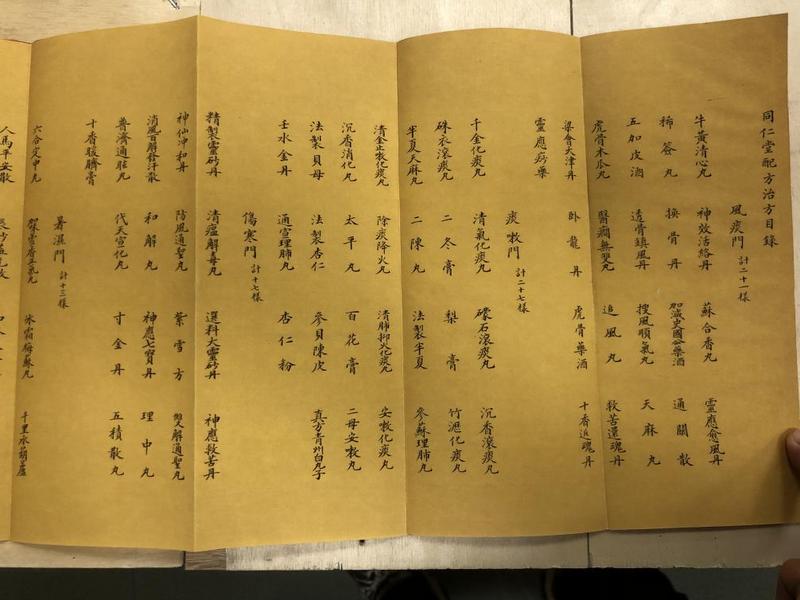 同仁堂配方治方目錄
風痰門 計二十一樣
牛黃清心丸 神效活絡丹 蘇合香丸 靈應愈風丹
豨簽丸 換骨丹 加減史國公藥酒 通關散
五加皮酒 透骨鎮風丹 搜風順氣丸 天麻丸
虎骨木瓜丸 醫癇無雙丸 追風丸 救苦還魂丹
梁會大津丹 臥龍丹 虎骨藥酒 十香返魂丹
靈應痧藥
痰嗽門 計二十七樣
千金化痰丸 清氣化痰丸 礞石滾痰丸 沉香滾痰丸
硃衣滾痰丸 二冬膏 梨膏 竹瀝化痰丸
半夏天麻丸 二陳丸 法製半夏 參蘇理肺丸
清金止嗽化痰丸 除痰降火丸 清肺抑火化痰丸 安嗽化痰丸
沉香消化丸 太平丸 百花膏 二母安嗽丸
法製貝母 法製杏仁 參貝陳皮 真方青州白丸子
壬水金丹 通宣理肺丸 杏仁粉
傷寒門 計十七樣
精製靈砂丹 清瘟解毒丸 選料大靈砂丹 神應救苦丹
神仙冲和丹 防風通聖丸 紫雪方 雙解通聖丸
消風百解發汗散 和解丸 神應七寶丹 理中丸
普濟通丸 代天宣化丸 寸金丹 五積散丸
十香暖臍膏
暑濕門 計十三樣
六合定中丸 香正氣丸 冰霜梅蘇丸 千里水葫蘆
人馬平安散